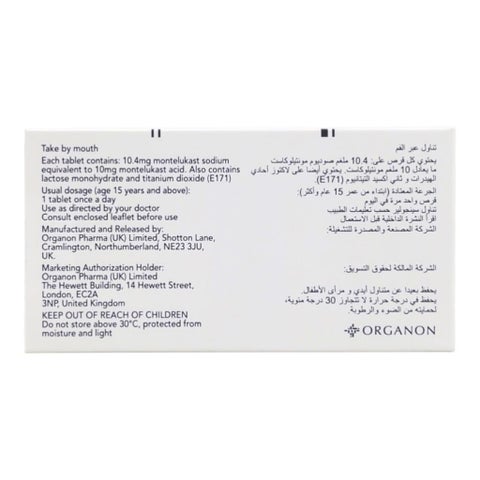 Take by mouth
Each tablet contains: 10.4mg montelukast sodium
equivalent to 10mg montelukast acid. Also contains
lactose monohydrate and titanium dioxide (E171)
Usual dosage (age 15 years and above):
1 tablet once a day
Use as directed by your doctor
Consult enclosed leaflet before use
Manufactured and Released by:
Organon Pharma (UK) Limited, Shotton Lane,
Cramlington, Northumberland, NE23 3JU,
UK.
Marketing Authorization Holder:
Organon Pharma (UK) Limited
The Hewett Building, 14 Hewett Street,
London, EC2A
3NP, United Kingdom
KEEP OUT OF REACH OF CHILDREN
Do not store above 30°C, protected from
moisture and light
تناول عبر الفم
يحتوي كل قرص على: 10.4 ملغم صوديوم مونتيلوكاست
ما يعادل 10 ملغم مونتيلوكاست. يحتوي أيضا على لاكتوز أحادي
الهيدرات و ثاني أكسيد التيتانيوم (E171).
الجرعة المعتادة (ابتداء من عمر 15 عام وأكثر):
قرص واحد مرة في اليوم
تناول سينجولير حسب تعليمات الطبيب
أقرأ النشرة الداخلية قبل الاستعمال
الشركة المصنعة والمصدرة للتشغيلة:
الشركة المالكة لحقوق التسويق:
يحفظ بعيدا عن متناول أيدي و مرأى الأطفال.
يحفظ في درجة حرارة لا تتجاوز 30 درجة مئوية،
لحمايته من الضوء والرطوبة.
ORGANON